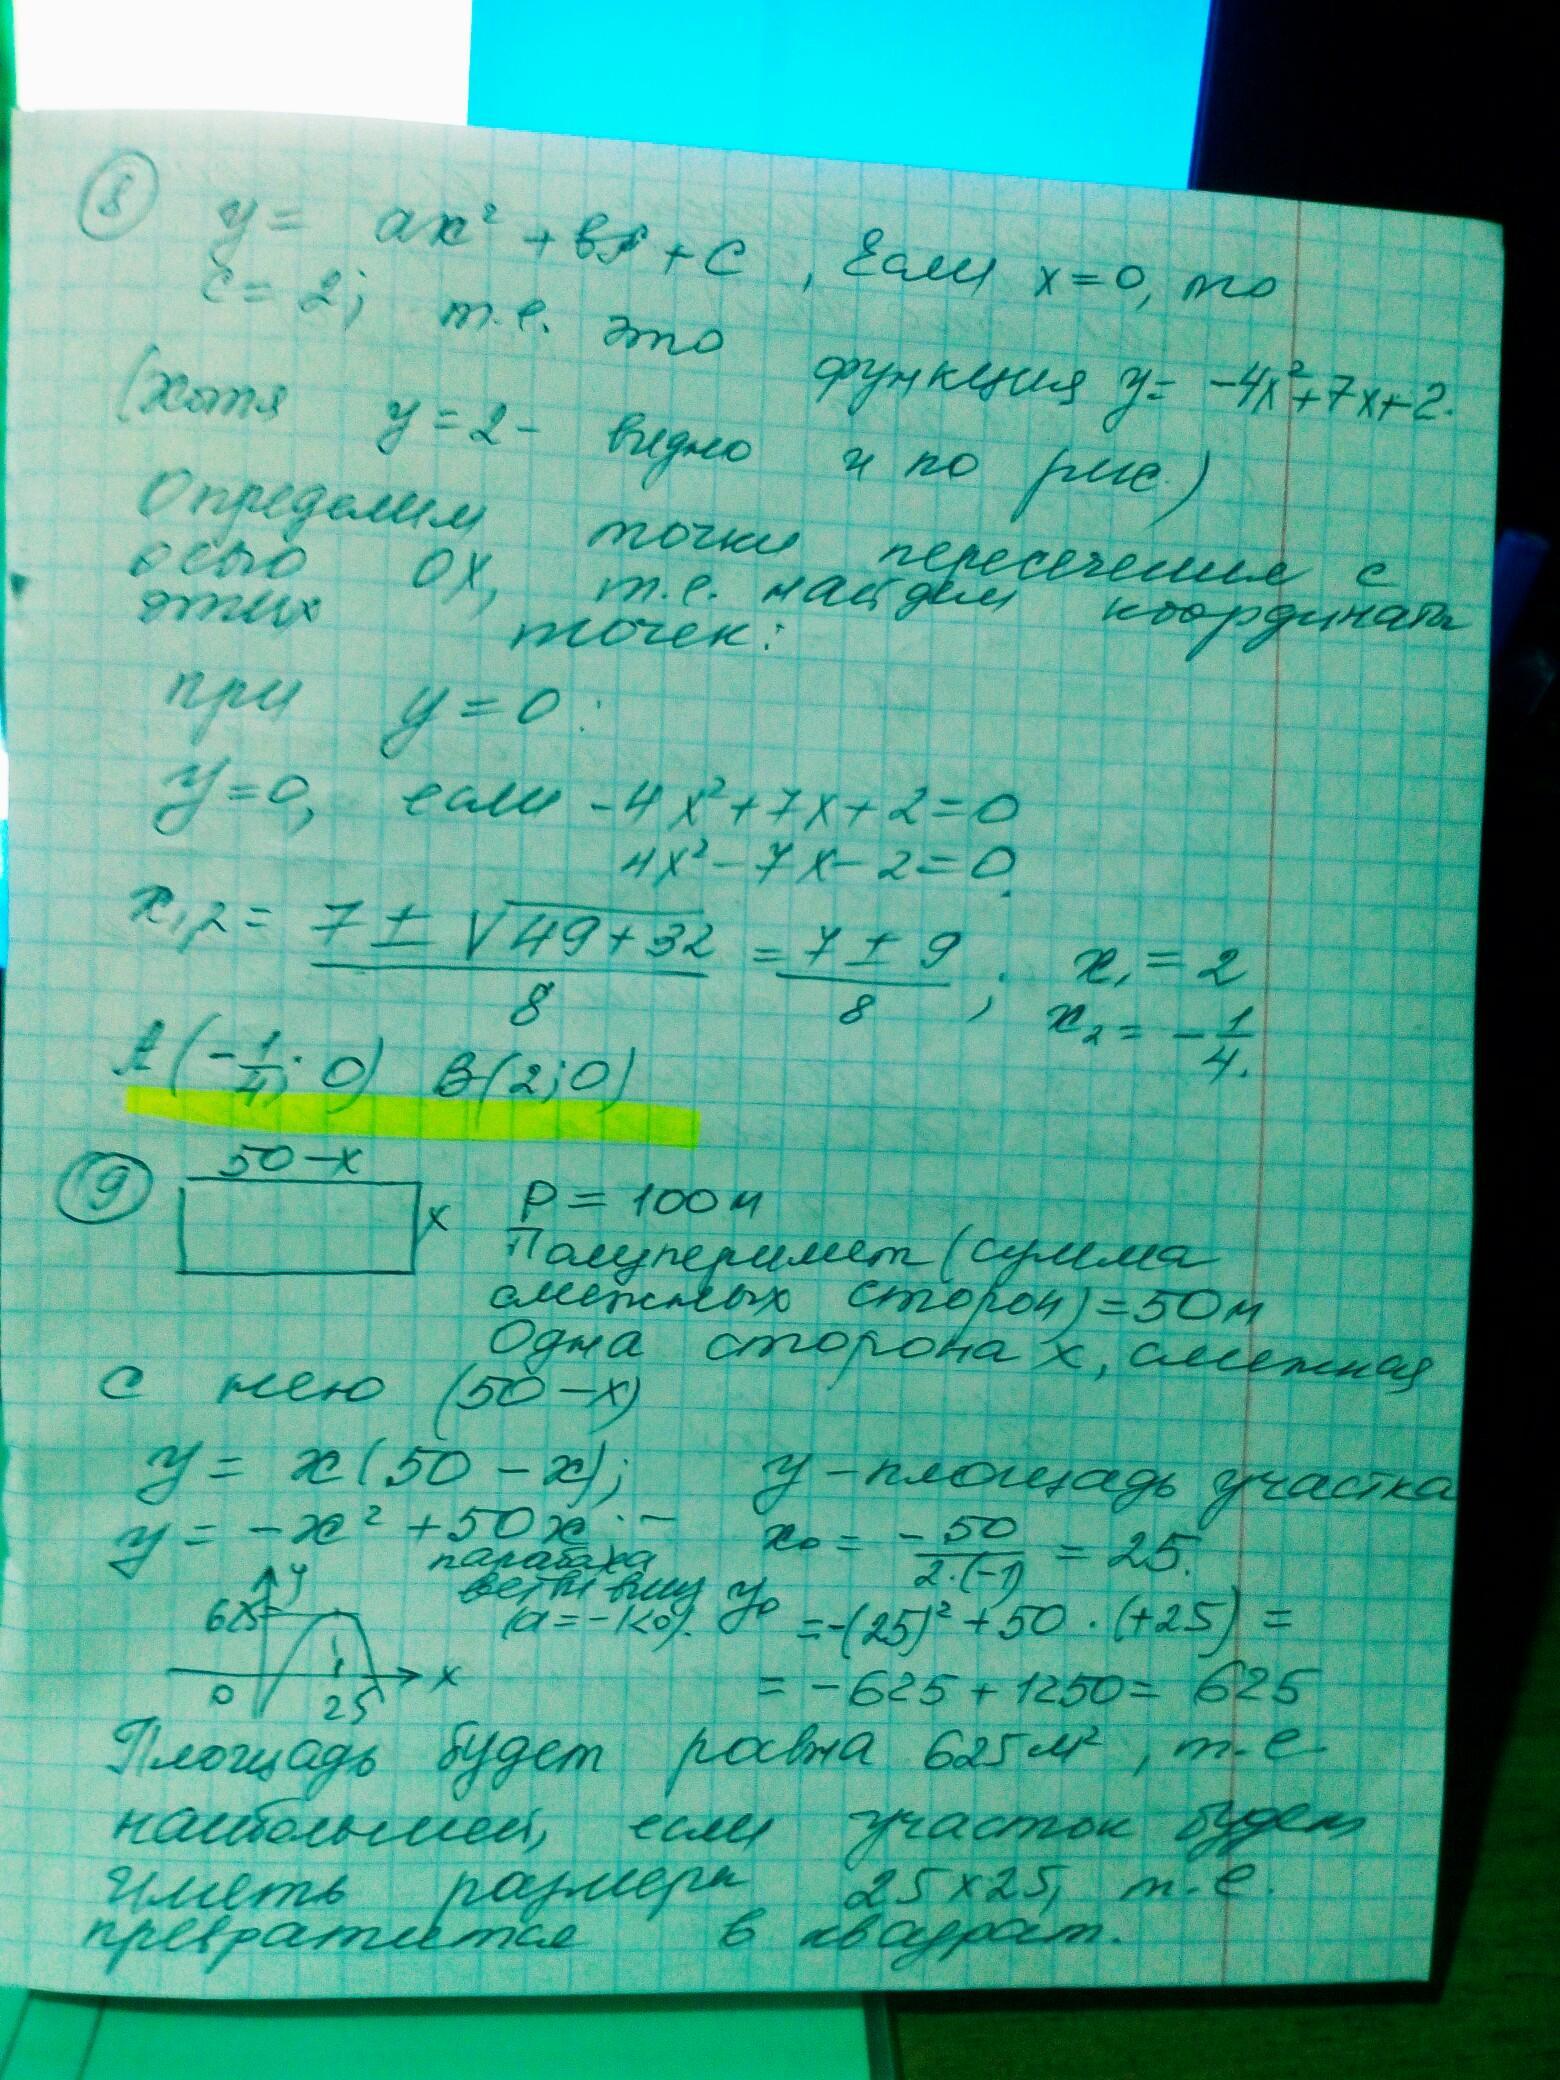 8 y = ax² + bx + c, Если x=0, то
c = 2; т.е. это функция y = -4x²+7x+2.
(хотя y=2 - видно и по рис.)
Определим точки пересечения с
осью OX, т.е. найдем координаты
этих точек:
при y=0:
y=0, если -4x²+7x+2=0
4x²-7x-2=0.
x1,2 = (7 ± √49+32)/8 = (7 ± 9)/8; x1 = 2
x2 = -1/4.
A(-1/4; 0) B(2; 0)
9 50-x
x P = 100м
Полупериметр (сумма
смежных сторон)=50м
Одна сторона x, смежная
с нею (50-x)
y = x(50-x); y - площадь участка
y = -x² + 50x - x0 = -50/2·(-1) = 25.
парабола
ветви вниз
(a=-1<0). y0 = -(25)²+50·(+25) =
= -625+1250 = 625
y
625
0 25 x
Площадь будет равна 625м², т.е.
наибольшей, если участок будет
иметь размеры 25x25, т.е.
превратится в квадрат.